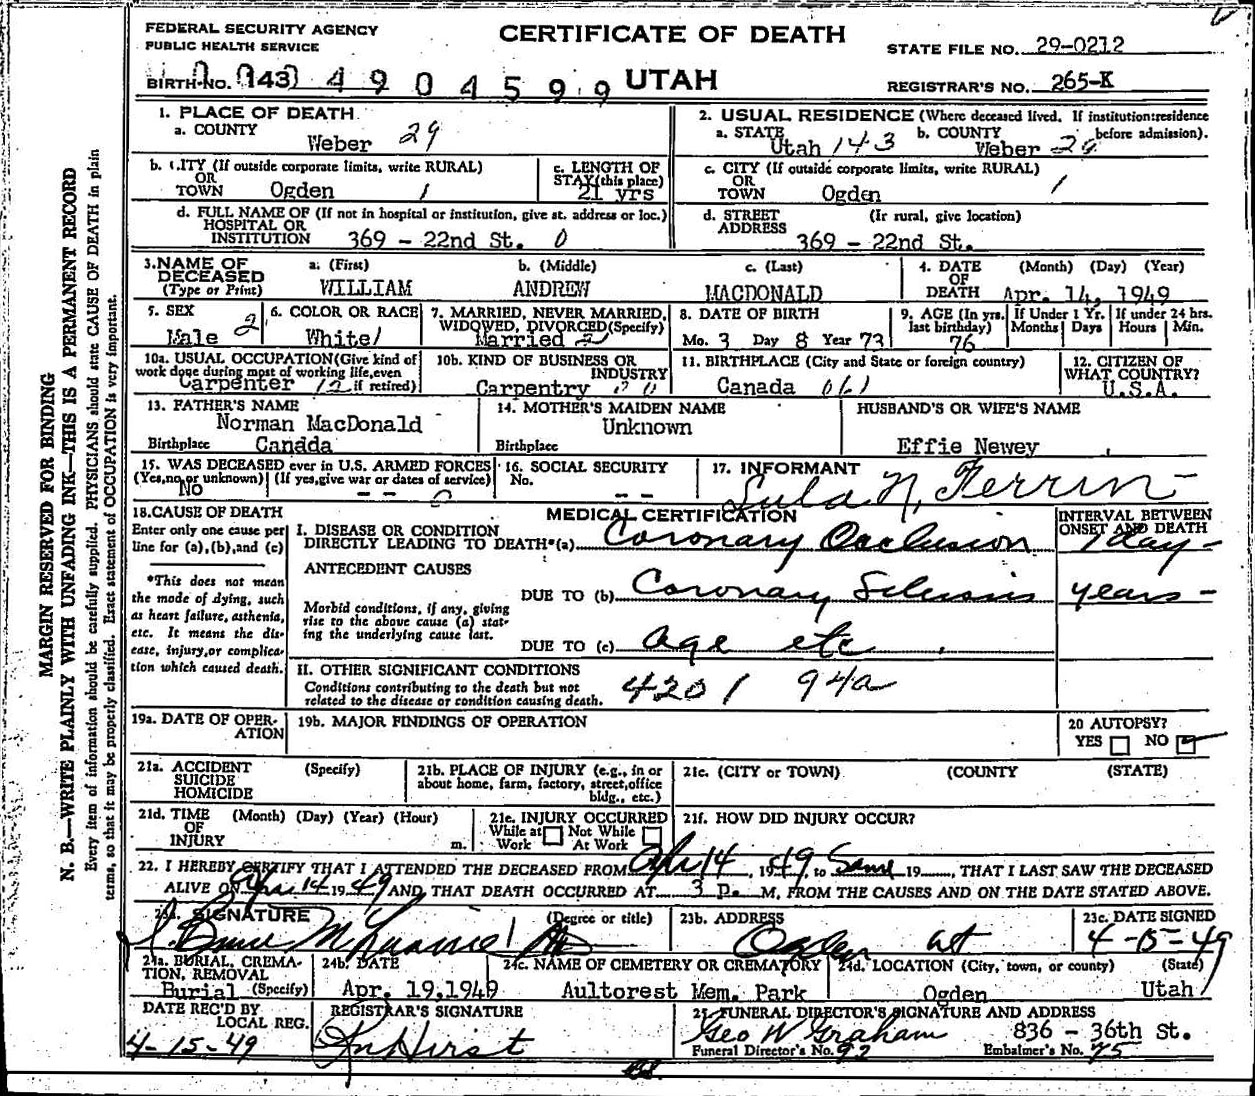 FEDERAL SECURITY AGENCY
PUBLIC HEALTH SERVICE
CERTIFICATE OF DEATH
STATE FILE NO. 29-0212
BIRTH NO. 143 4904599 UTAH
REGISTRAR'S NO. 265-K
MARGIN RESERVED FOR BINDING
N. B.—WRITE PLAINLY WITH UNFADING INK—THIS IS A PERMANENT RECORD
Every item of information should be carefully supplied. PHYSICIANS should state CAUSE OF DEATH in plain
terms, so that it may be properly classified. Exact statement of OCCUPATION is very important.
1. PLACE OF DEATH
a. COUNTY
Weber 29
2. USUAL RESIDENCE (Where deceased lived. If institution:residence
a. STATE b. COUNTY before admission).
Utah 143 Weber 29
b. CITY (If outside corporate limits, write RURAL)
OR
TOWN Ogden 1
c. LENGTH OF
STAY (this place)
21 yrs
c. CITY (If outside corporate limits, write RURAL)
OR
TOWN Ogden 1
d. FULL NAME OF (If not in hospital or institution, give st. address or loc.)
HOSPITAL OR
INSTITUTION 369 - 22nd St. 0
d. STREET (If rural, give location)
ADDRESS
369 - 22nd St.
3. NAME OF DECEASED
(Type or Print)
a. (First) b. (Middle) c. (Last)
WILLIAM ANDREW MACDONALD
4. DATE (Month) (Day) (Year)
OF
DEATH Apr. 14, 1949
5. SEX
Male 2
6. COLOR OR RACE
White 1
7. MARRIED, NEVER MARRIED,
WIDOWED, DIVORCED (Specify)
Married 2
8. DATE OF BIRTH
Mo. 3 Day 8 Year 73
9. AGE (In yrs. last birthday)
76
If Under 1 Yr.
Months Days
If under 24 hrs.
Hours Min.
10a. USUAL OCCUPATION (Give kind of
work done during most of working life, even
Carpenter 12 if retired)
10b. KIND OF BUSINESS OR
INDUSTRY
Carpentry
11. BIRTHPLACE (City and State or foreign country)
Canada 061
12. CITIZEN OF
WHAT COUNTRY?
U.S.A.
13. FATHER'S NAME
Norman MacDonald
Birthplace Canada
14. MOTHER'S MAIDEN NAME
Unknown
Birthplace
HUSBAND'S OR WIFE'S NAME
Effie Newey
15. WAS DECEASED ever in U.S. ARMED FORCES
(Yes, no, or unknown) (If yes, give war or dates of service)
No - - 0
16. SOCIAL SECURITY
No. - -
17. INFORMANT
Lula N. Ferrin
18. CAUSE OF DEATH
Enter only one cause per
line for (a), (b), and (c)
*This does not mean
the mode of dying, such
as heart failure, asthenia,
etc. It means the dis-
ease, injury, or complica-
tion which caused death.
MEDICAL CERTIFICATION
INTERVAL BETWEEN
ONSET AND DEATH
I. DISEASE OR CONDITION
DIRECTLY LEADING TO DEATH*(a) Coronary Occlusion 1 day -
ANTECEDENT CAUSES
DUE TO (b) Coronary Sclerosis years -
Morbid conditions, if any, giving
rise to the above cause (a) stat-
ing the underlying cause last.
DUE TO (c) age etc.
II. OTHER SIGNIFICANT CONDITIONS
Conditions contributing to the death but not
related to the disease or condition causing death.
4201 94a
19a. DATE OF OPER-
ATION
19b. MAJOR FINDINGS OF OPERATION
20 AUTOPSY?
YES NO
21a. ACCIDENT (Specify)
SUICIDE
HOMICIDE
21b. PLACE OF INJURY (e.g., in or
about home, farm, factory, street, office
bldg., etc.)
21c. (CITY or TOWN) (COUNTY) (STATE)
21d. TIME (Month) (Day) (Year) (Hour)
OF
INJURY m.
21e. INJURY OCCURRED
While at Work Not While At Work
21f. HOW DID INJURY OCCUR?
22. I HEREBY CERTIFY THAT I ATTENDED THE DECEASED FROM Apr 14, 1949, to Same 19, THAT I LAST SAW THE DECEASED
ALIVE ON Apr 14 1949 AND THAT DEATH OCCURRED AT 3 P. M, FROM THE CAUSES AND ON THE DATE STATED ABOVE.
23a. SIGNATURE (Degree or title)
23b. ADDRESS
Ogden Ut
23c. DATE SIGNED
4-15-49
24a. BURIAL, CREMA-
TION, REMOVAL
Burial (Specify)
24b. DATE
Apr. 19, 1949
24c. NAME OF CEMETERY OR CREMATORY
Aultorest Mem. Park
24d. LOCATION (City, town, or county) (State)
Ogden Utah
DATE REC'D BY
LOCAL REG.
4-15-49
REGISTRAR'S SIGNATURE
Hirst
25. FUNERAL DIRECTOR'S SIGNATURE AND ADDRESS
Geo W Graham 836 - 36th St.
Funeral Director's No. 92 Embalmer's No. 75